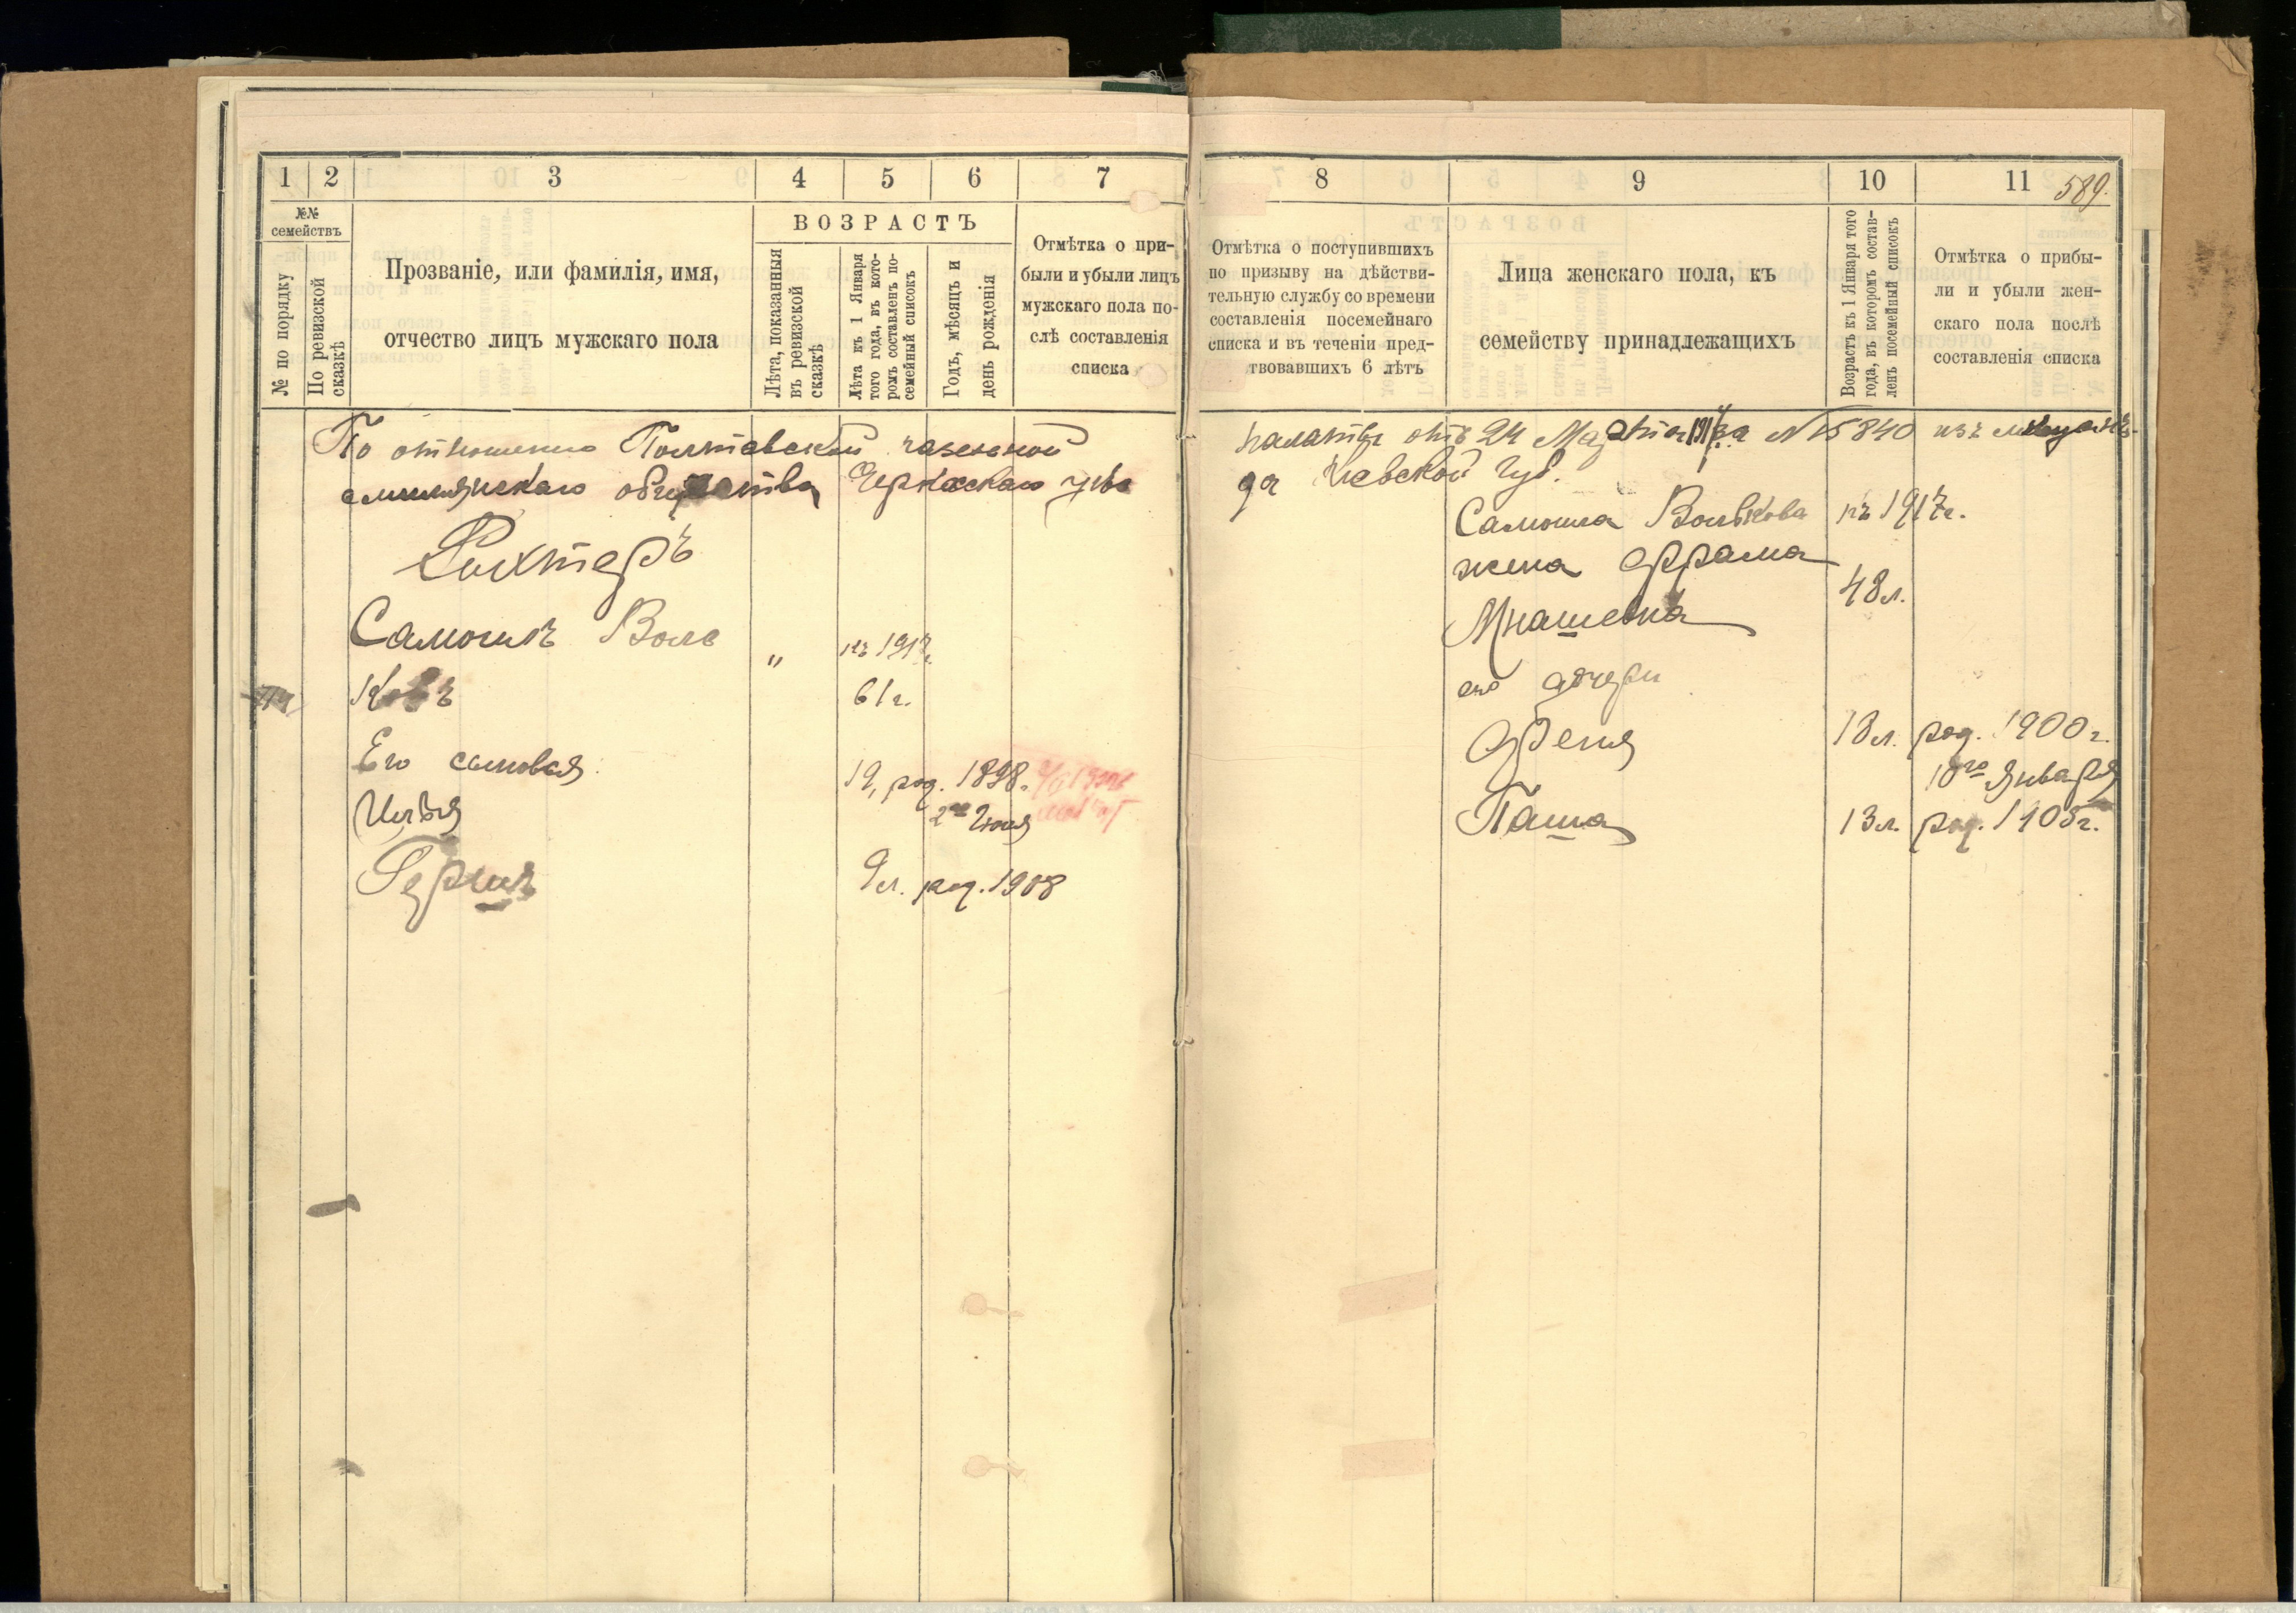 1 2 3 4 5 6 7
№№ семействъ
№ по порядку
По ревизской сказкѣ
Прозваніе, или фамилія, имя,
отчество лицъ мужскаго пола
ВОЗРАСТЪ
Лѣта, показанныя
въ ревизской
сказкѣ
Лѣта къ 1 Января
того года, въ кото-
ромъ составленъ по-
семейный списокъ
Годъ, мѣсяцъ и
день рожденія
Отмѣтка о при-
были и убыли лицъ
мужскаго пола по-
слѣ составленія
списка
По отношенію Полтавской казенной
смилянскаго общества Черкасскаго уѣз
Рихтеръ
Самоилъ Воль " къ 1917 г.
ковъ 61 г.
Его сыновья
Илья 19, род. 1898.
2го Іюня
Гершъ 9 л. род. 1908
8 9 10 11
589.
Отмѣтка о поступившихъ
по призыву на дѣйстви-
тельную службу со времени
составленія посемейнаго
списка и въ теченіи пред-
ствовавшихъ 6 лѣтъ
Лица женскаго пола, къ
семейству принадлежащихъ
Возрастъ къ 1 Января того
года, въ которомъ состав-
ленъ посемейный списокъ
Отмѣтка о прибы-
ли и убыли жен-
скаго пола послѣ
составленія списка
палаты отъ 24 Марта за № 5840 изъ мѣщанъ
да Кіевской губ.
Самоила Волькова къ 1917 г.
жена Фрама
48 л.
Мнашевна
его дочери
Феня 18 л. род. 1900 г.
10го Января
Паша 13 л. род. 1905 г.